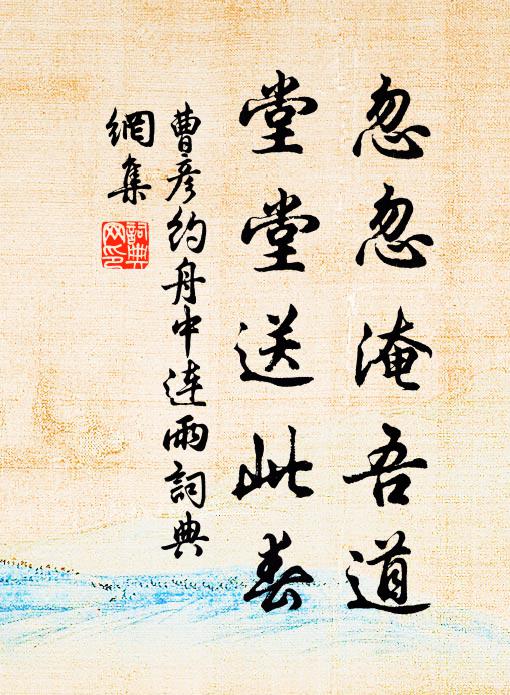 忽忽淹吾道
堂堂送此春
曹彦約舟中連雨詞典
網集
詞典
网印